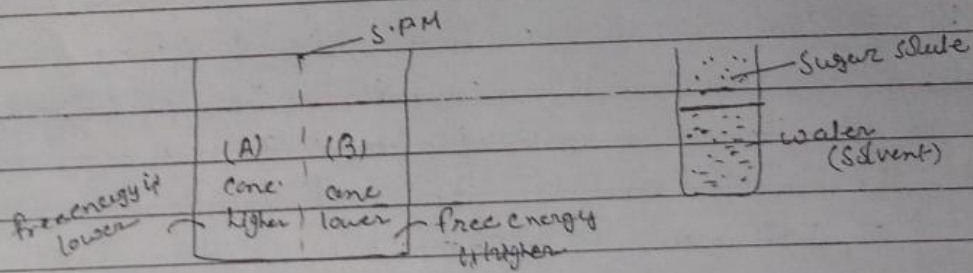 S.PM
Sugar solute
(A) (B)
water
(Solvent)
conc. conc
higher lower
free energy is
lower
free energy
is higher